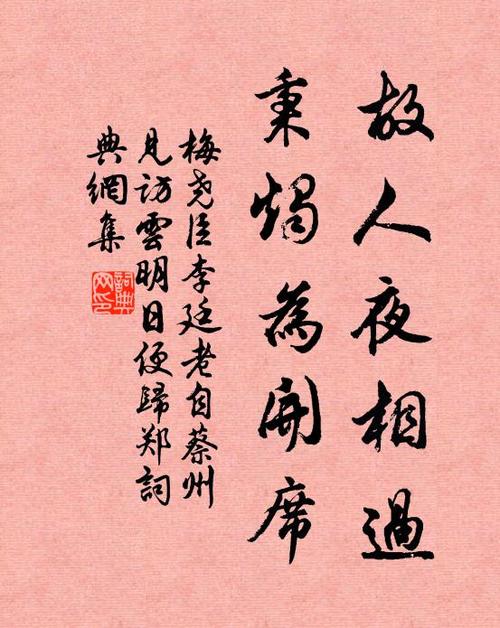 故人夜相過
秉燭為開席
梅堯臣李廷老自蔡州
見訪雲明日便歸郑詞
典網集
詞典網印